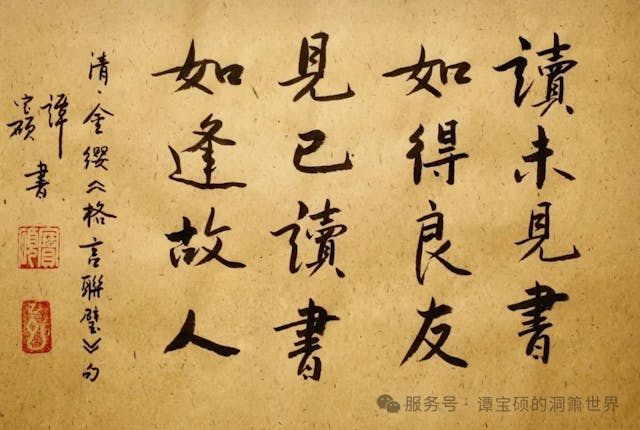 讀未見書
如得良友
見已讀書
如逢故人
清·金缨《格言聯璧》句
譚宝硕書
服务号·谭宝硕的洞箫世界